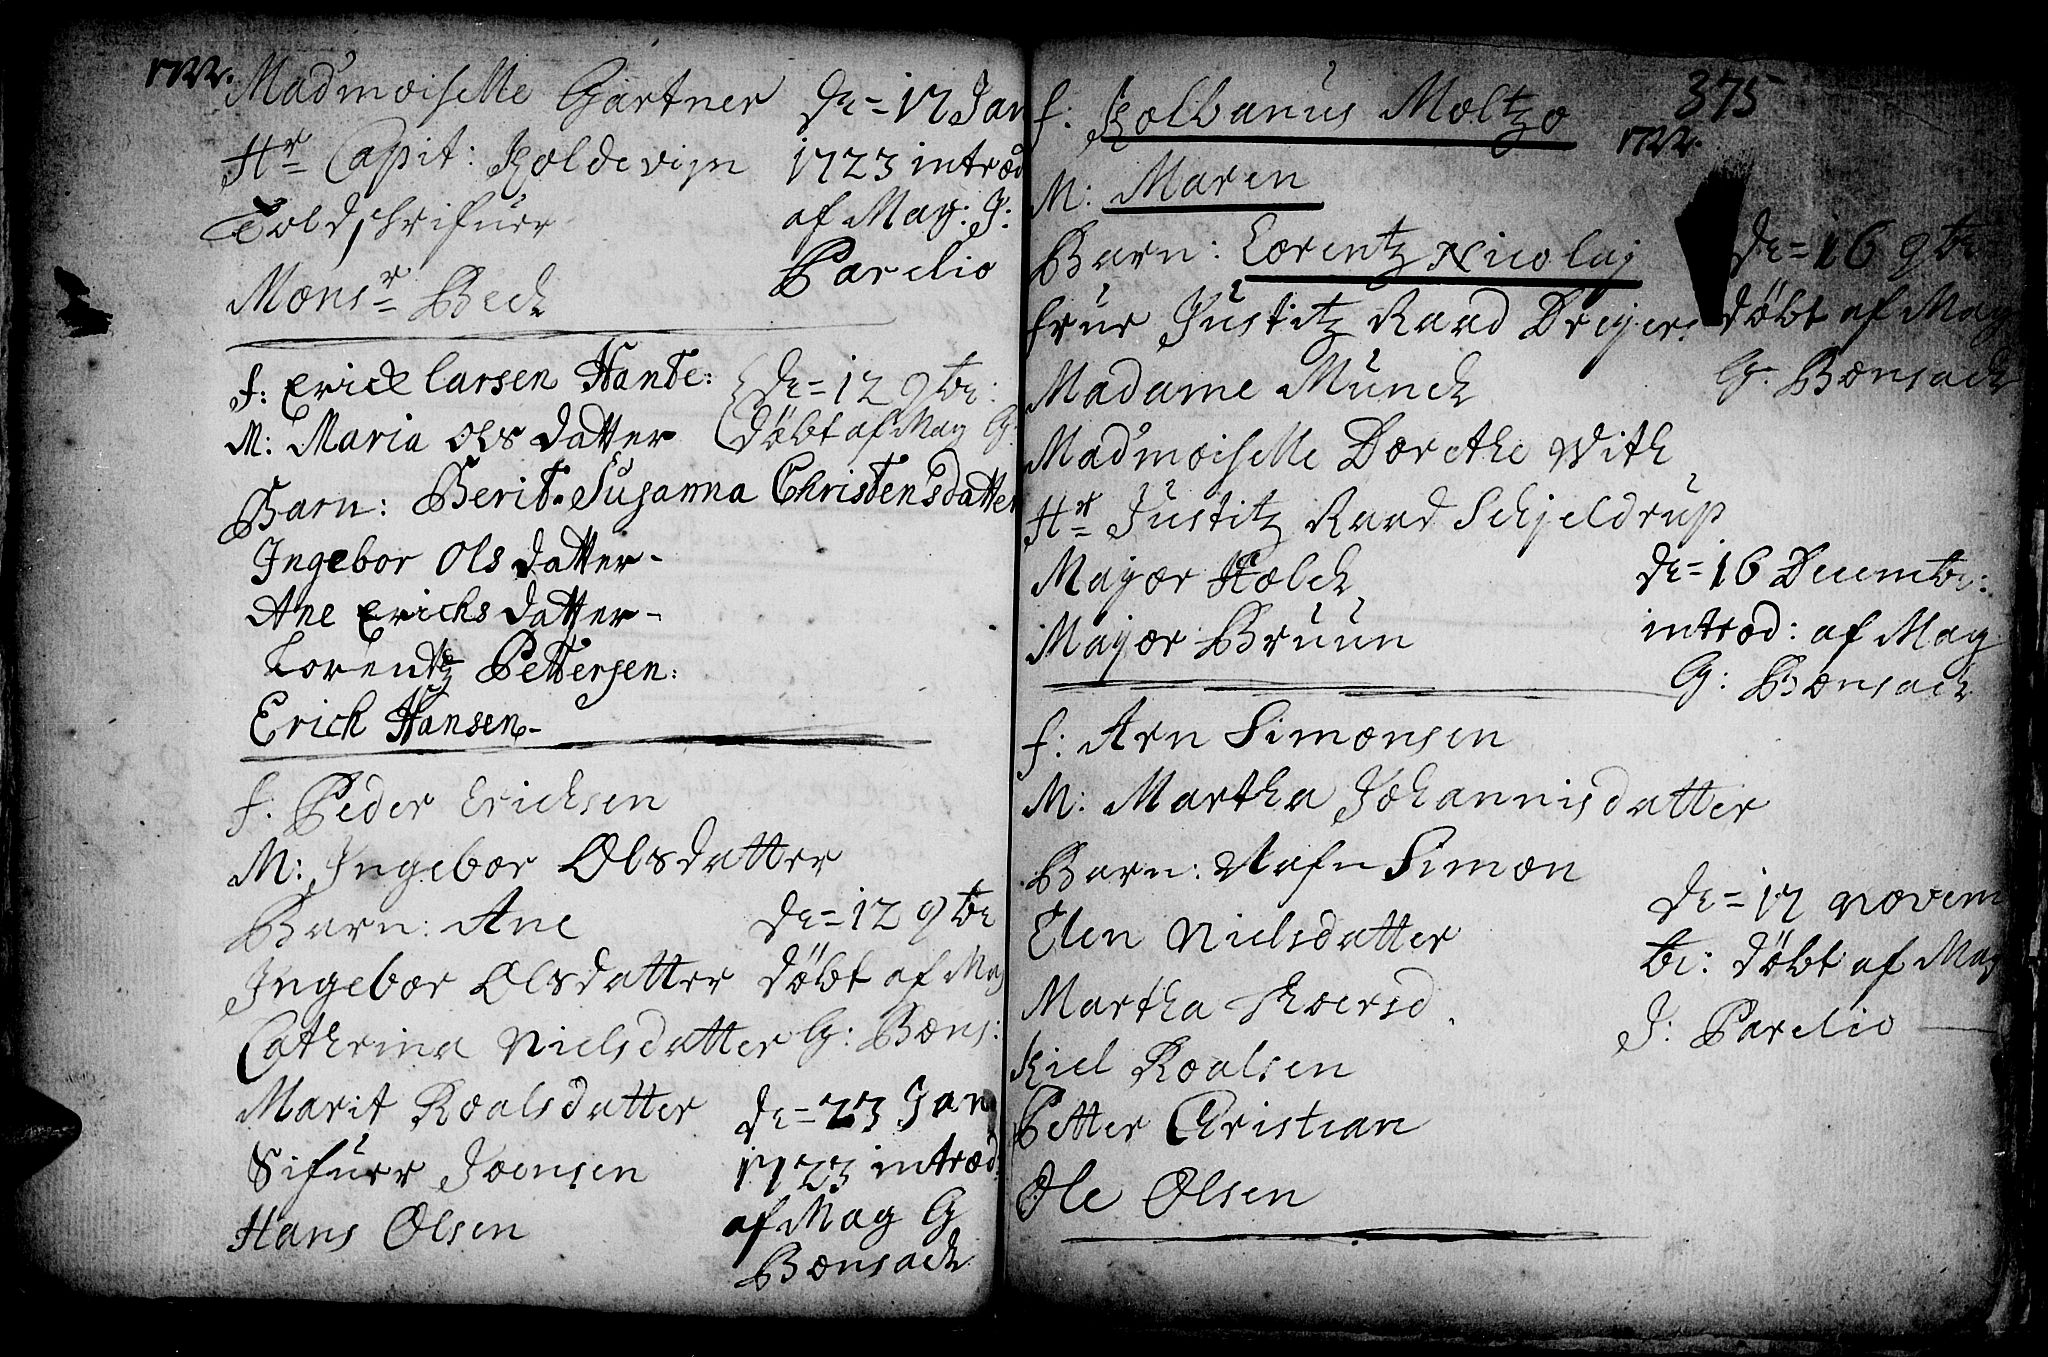 1722.
Madmoiselle Gartner
Hr Capit: Koldevijn
Told skrifuer
Monsr Beck
De= 17 Jan
1723 introd
af Mag: J:
Parelio
f: Erick Larsen Hanbe:
M: Maria Ols datter
Barn: Berit. Susanna Christensdatter
Ingebor Ols datter-
Ane Erichs datter-
Lorentz Pettersen:
Erick Hansen-
De= 12 9br:
døbt af Mag G
f: Peder Ericksen
M: Ingebor Olsdatter
Barn: Ane
Ingebor Olsdatter
Catherina Nielsdatter
Marit Roalsdatter
Sifuer Joensen
Hans Olsen
De= 12 9br
døbt af Mag
G: Bons:
De= 23 Jan
1723 introd
af Mag G
Bonsack
375
1722.
f: Kolbanus Moltzo
M: Maren
Barn: Lorentz Nicolaj
frue Justitz Raad Dreyers
Madame Munck
Madmoiselle Dorethe With
Hr Justitz Raad Schjeldrup
Major Holck
Major Bruun
De= 16 9br
døbt af Mag
G. Bonsack
De= 16 Decembr:
introd: af Mag
G: Bonsack
f: Arn Simonsen
M: Martha Johannisdatter
Barn: Nafn Simon
Elen Nielsdatter
Martha
Kiel Roalsen
Petter Christian
Ole Olsen
De= 17 Novem
br: døbt af Mag
J: Parelio